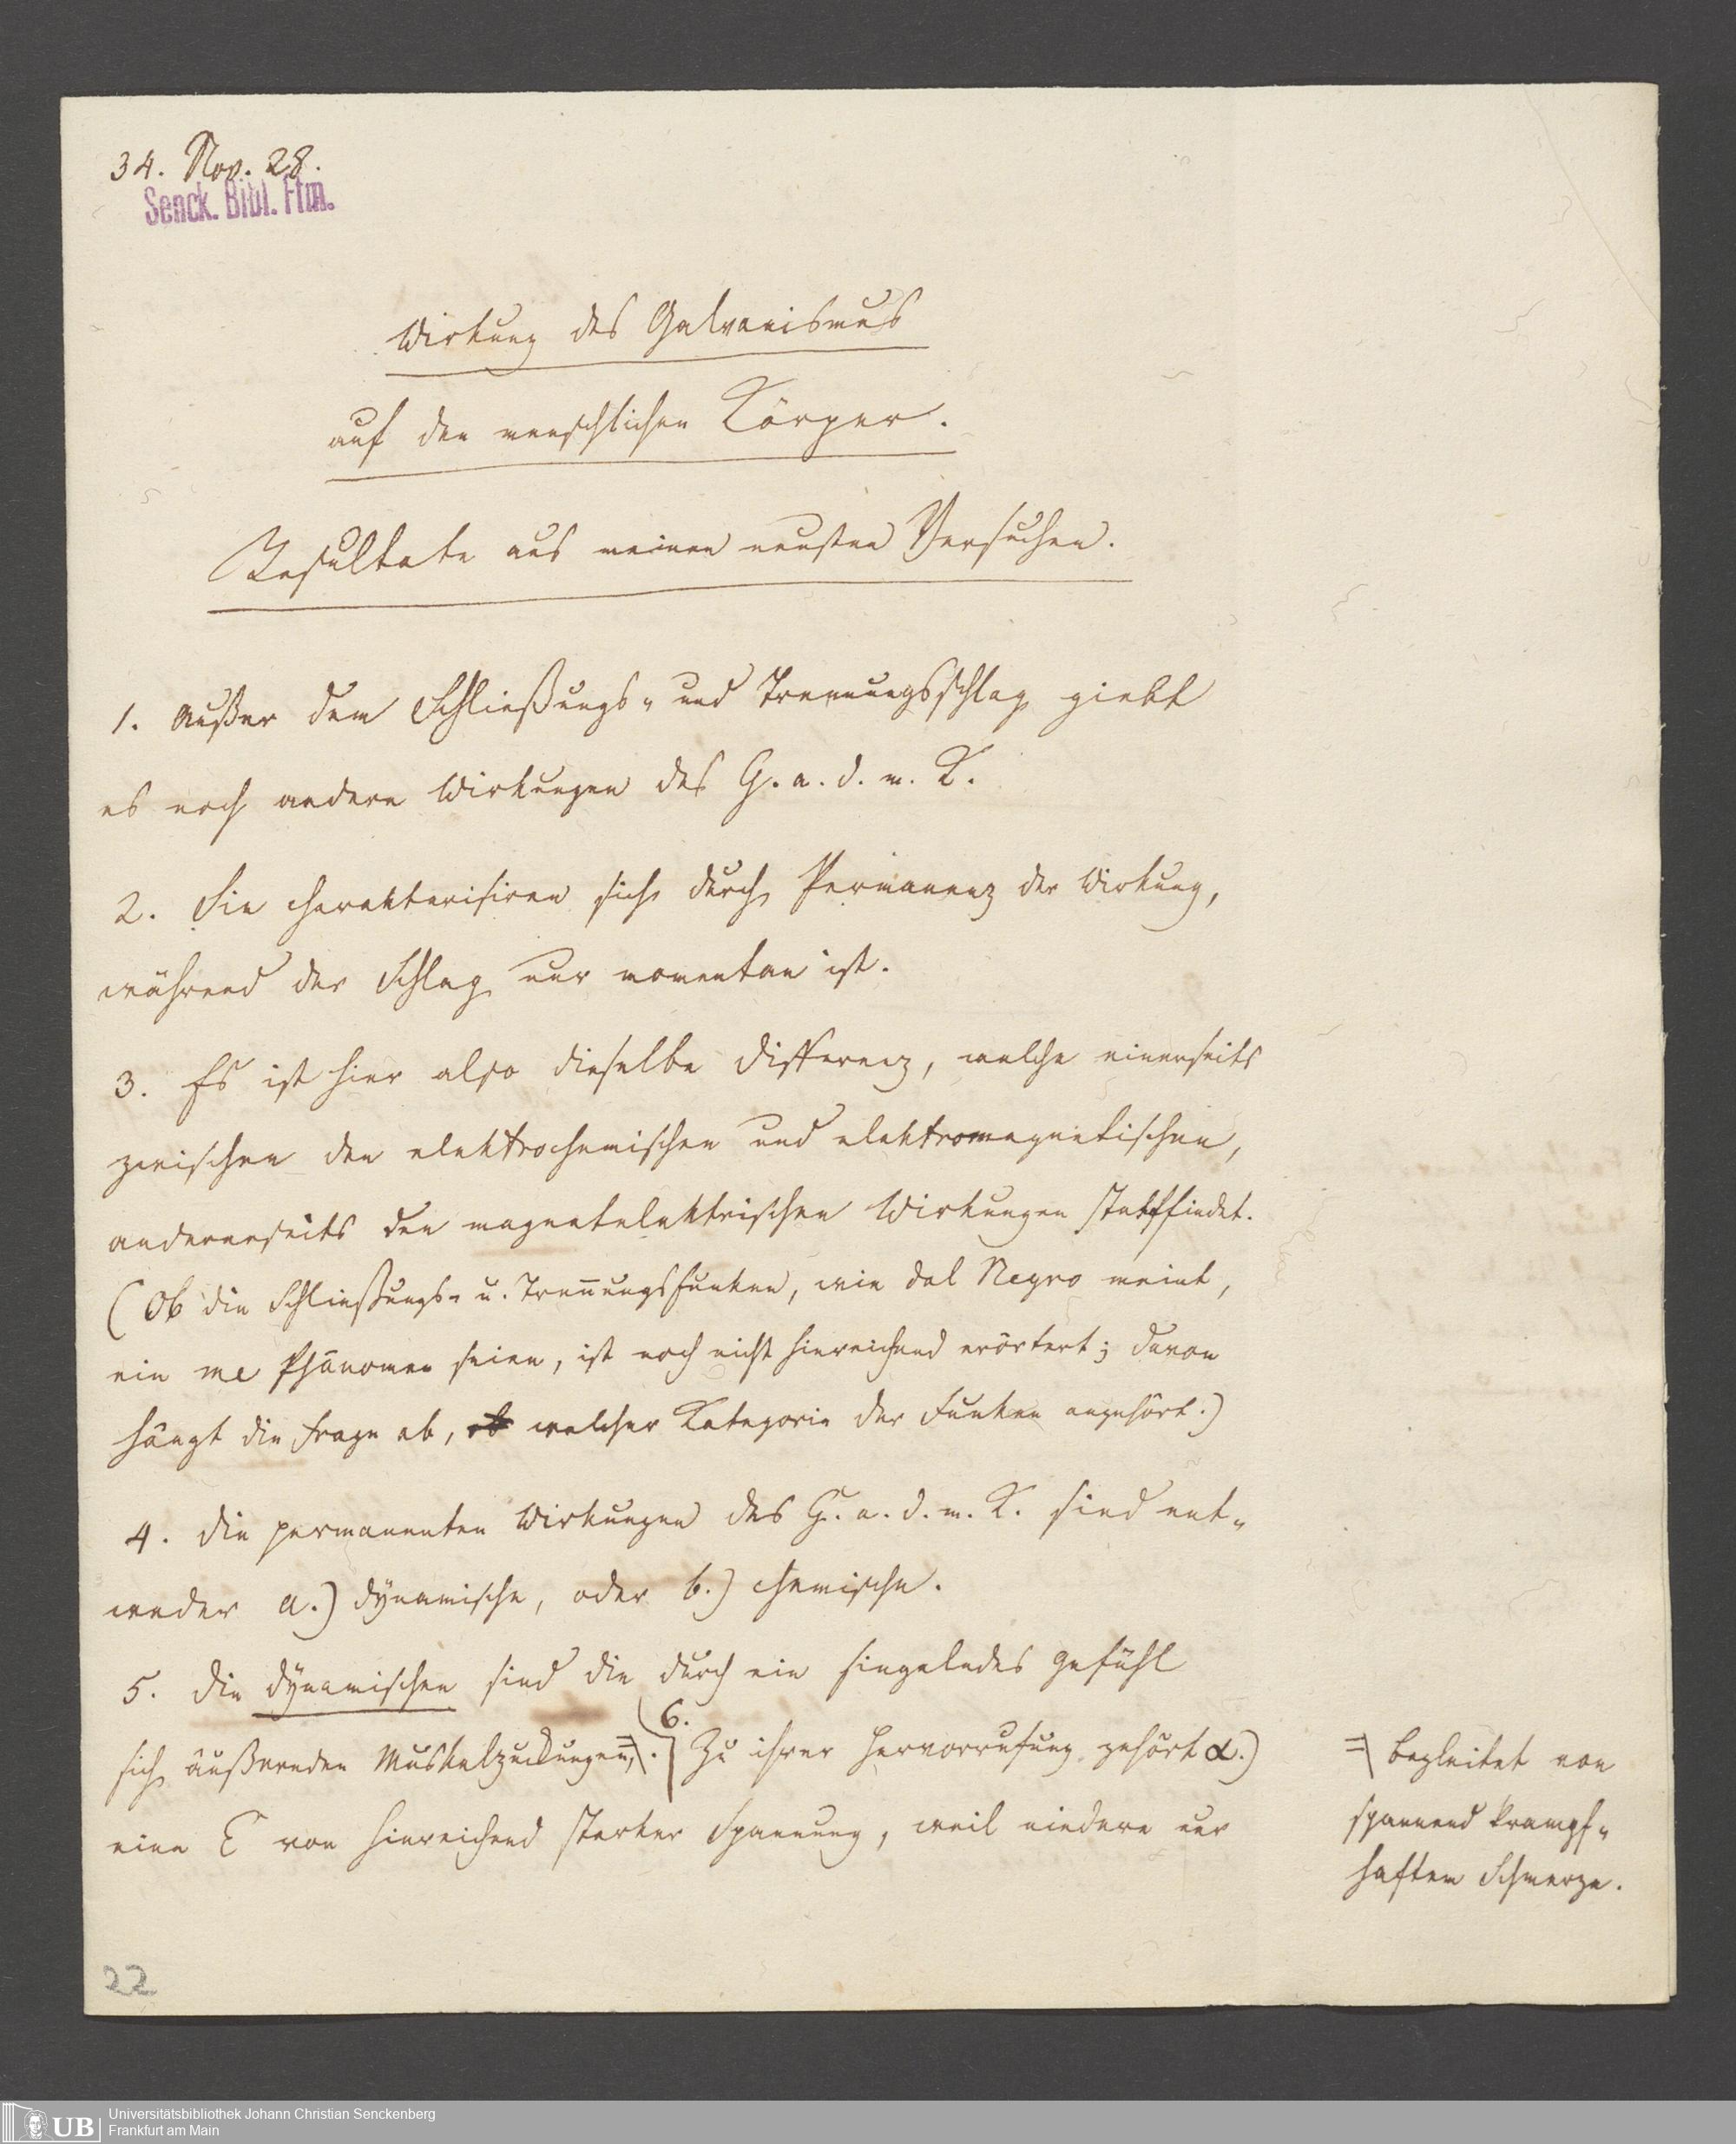 34. Nov. 28.
Senck. Bibl. Ffm.
Wirkung des Galvanismus
auf den menschlichen Körper.
Resultate aus meinen neusten Versuchen.
1. Außer dem Schließungs- und Trennungsschlag giebt
es noch andere Wirkungen des G. a. d. m. K.
2. Sie charakterisiren sich durch Permanenz der Wirkung,
während der Schlag nur momentan ist.
3. Es ist hier also dieselbe Differenz, welche einerseits
zwischen den elektrochemischen und elektromagnetischen,
andererseits den magnetelektrischen Wirkungen stattfindet.
(Ob die Schließungs- u. Trennungsfunken, wie dal Negro meint,
ein me Phänomen seien, ist noch nicht hinreichend erörtert; davon
hängt die Frage ab, ob welcher Kategorie der Funken angehört.)
4. Die permanenten Wirkungen des G. a. d. m. K. sind ent-
weder a.) dynamische, oder b.) chemische.
5. Die dynamischen sind die durch ein singelndes Gefühl
sich äußernden Muskelzuckungen. 6. Zu ihrer Hervorrufung gehört α.)
eine E von hinreichend starker Spannung, weil niedere nur
begleitet von
spannend krampf-
haftem Schmerze.
22
UB
Universitätsbibliothek Johann Christian Senckenberg
Frankfurt am Main